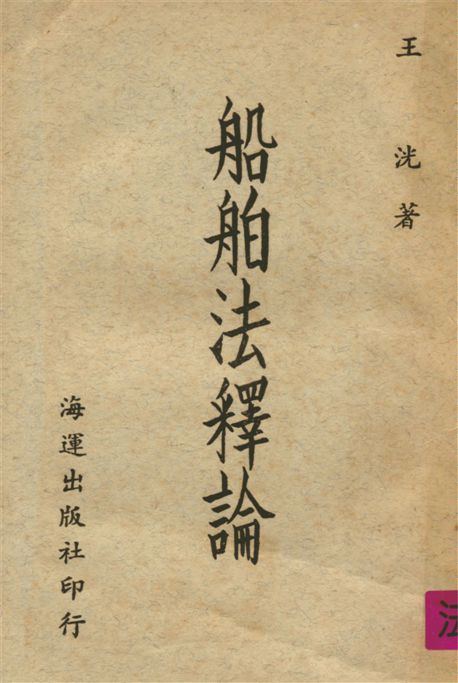 王洸著
船舶法釋論
海運出版社印行
法